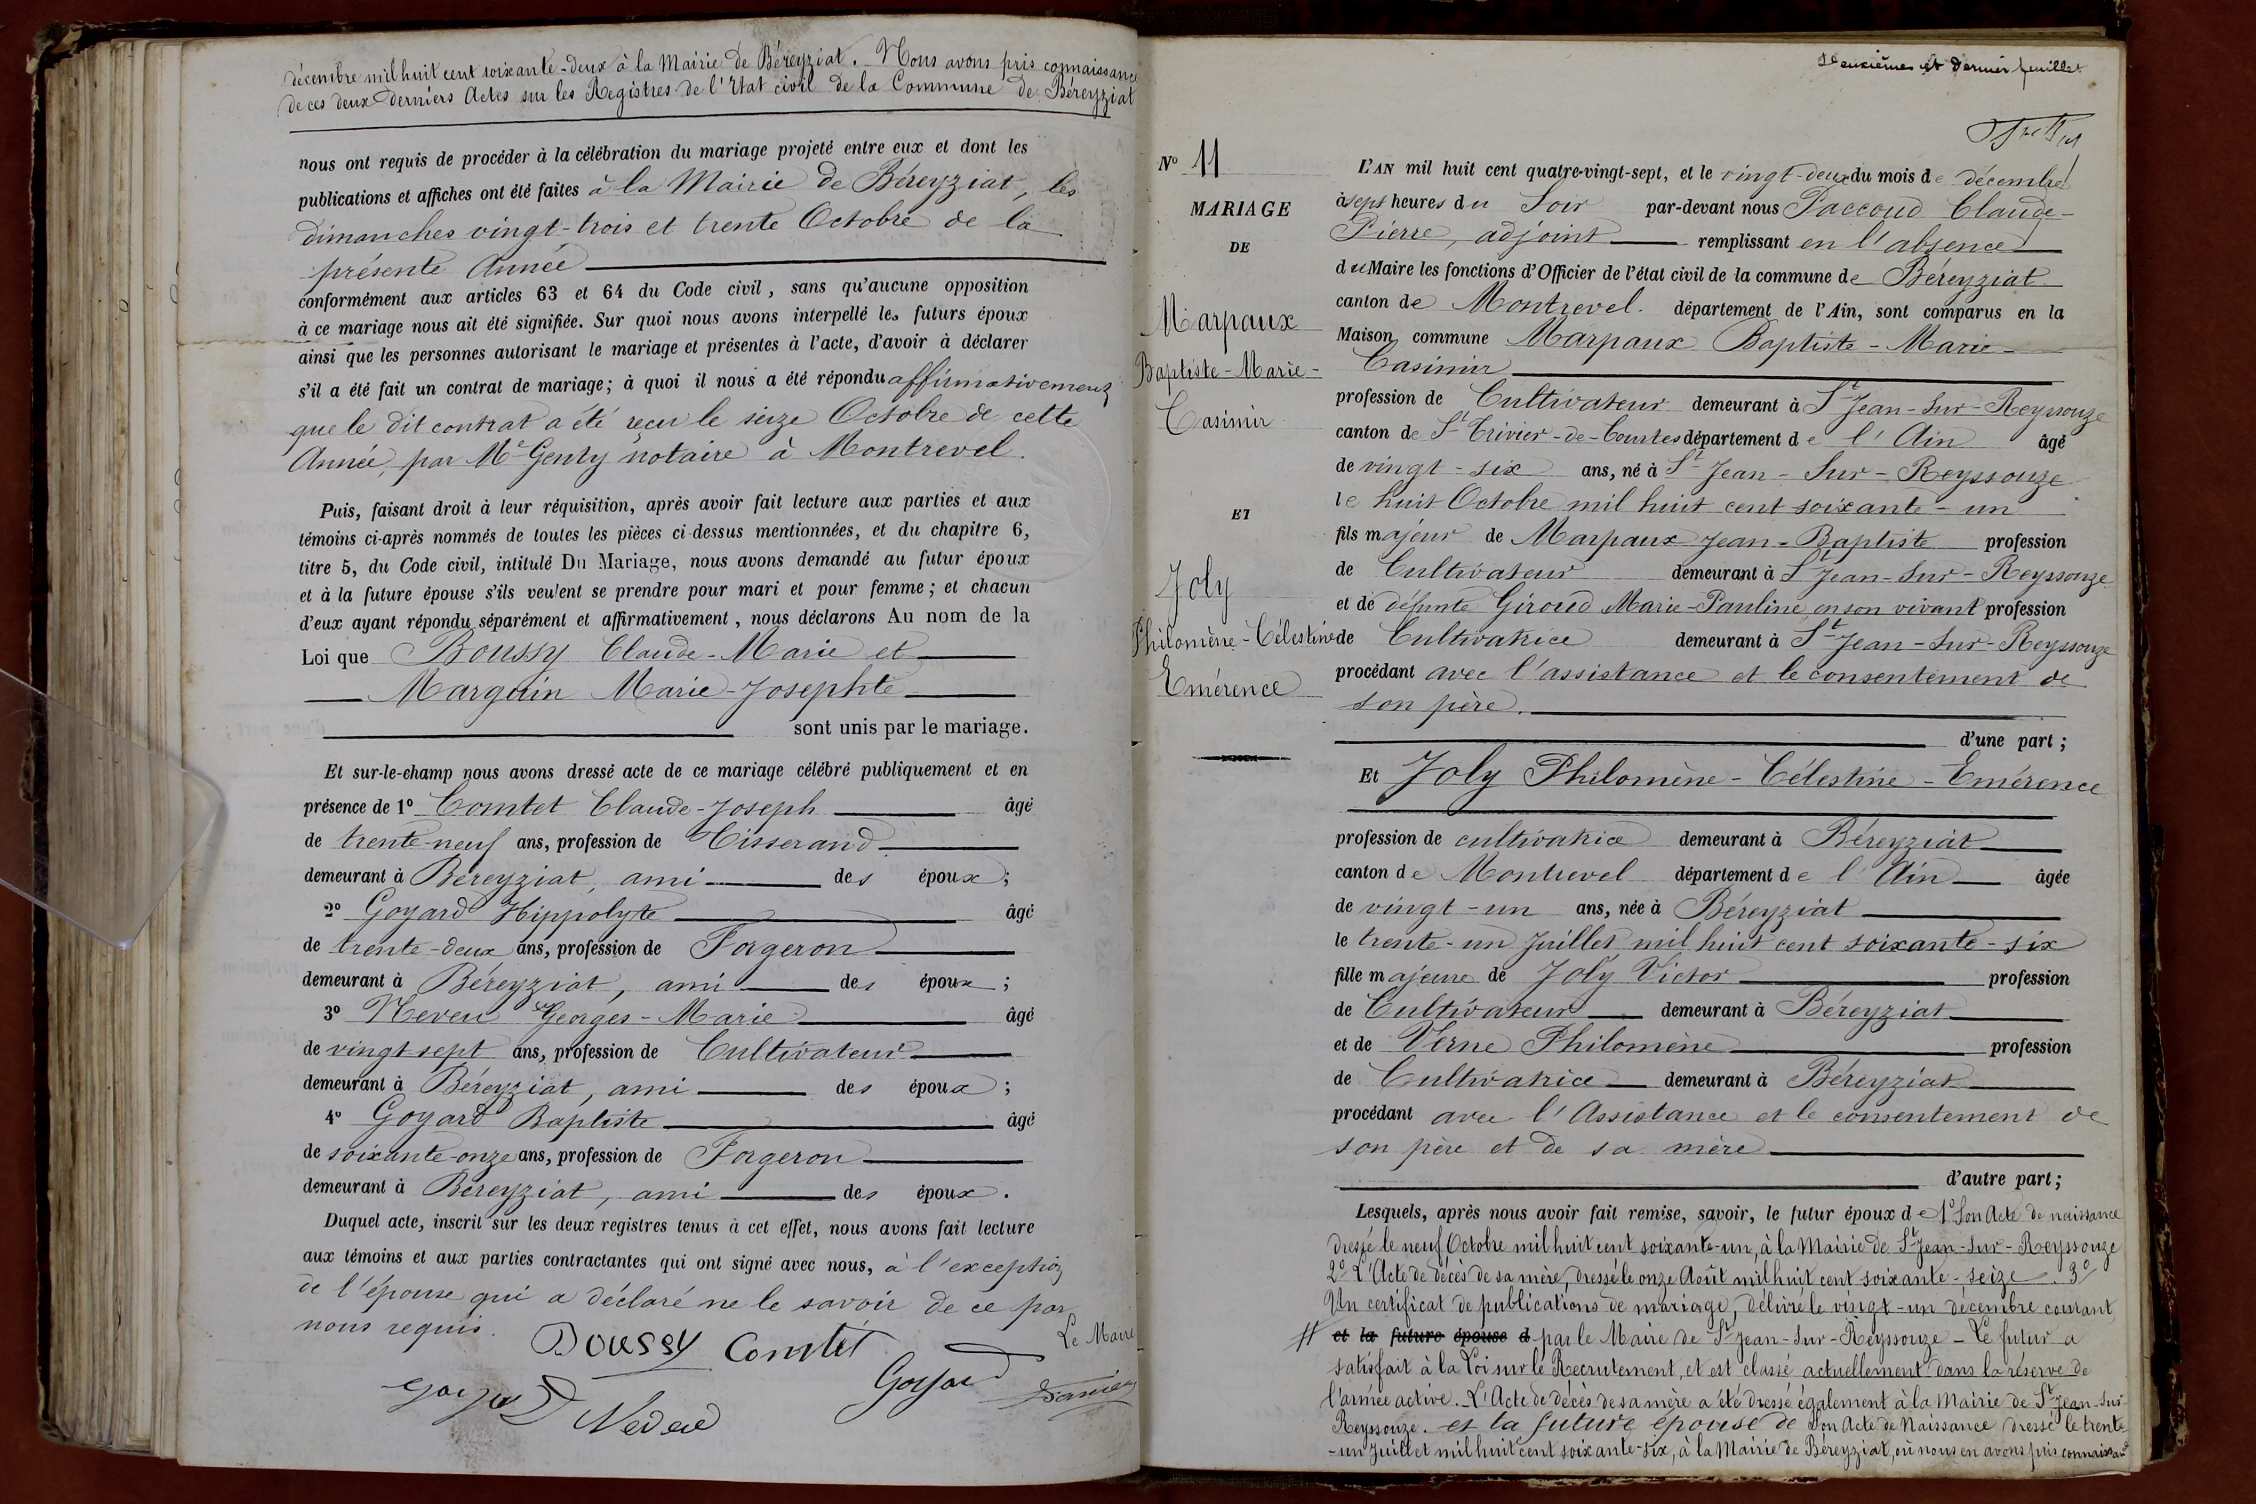 décembre mil huit cent soixante-deux à la Mairie de Béreyziat. Nous avons pris connaissance
de ces deux derniers Actes sur les Registres de l'Etat civil de la Commune de Béreyziat
nous ont requis de procéder à la célébration du mariage projeté entre eux et dont les
publications et affiches ont été faites à la Mairie de Béreyziat, les
dimanches vingt-trois et trente Octobre de la
présente Année
conformément aux articles 63 et 64 du Code civil, sans qu'aucune opposition
à ce mariage nous ait été signifiée. Sur quoi nous avons interpellé les futurs époux
ainsi que les personnes autorisant le mariage et présentes à l'acte, d'avoir à déclarer
s'il a été fait un contrat de mariage; à quoi il nous a été répondu affirmativement
que le dit contrat a été reçu le seize Octobre de cette
Année, par Me Genty notaire à Montrevel.
Puis, faisant droit à leur réquisition, après avoir fait lecture aux parties et aux
témoins ci-après nommés de toutes les pièces ci-dessus mentionnées, et du chapitre 6,
titre 5, du Code civil, intitulé Du Mariage, nous avons demandé au futur époux
et à la future épouse s'ils veulent se prendre pour mari et pour femme; et chacun
d'eux ayant répondu séparément et affirmativement, nous déclarons Au nom de la
Loi que Boussy Claude-Marie et
Marguin Marie-Josephte
sont unis par le mariage.
Et sur-le-champ nous avons dressé acte de ce mariage célébré publiquement et en
présence de 1° Comtet Claude-Joseph âgé
de trente-neuf ans, profession de Tisserand
demeurant à Béreyziat, ami des époux;
2° Goyard Hippolyte âgé
de trente-deux ans, profession de Forgeron
demeurant à Béreyziat, ami des époux;
3° Neveu Georges-Marie âgé
de vingt-sept ans, profession de Cultivateur
demeurant à Béreyziat, ami des époux;
4° Goyard Baptiste âgé
de soixante-onze ans, profession de Forgeron
demeurant à Béreyziat, ami des époux.
Duquel acte, inscrit sur les deux registres tenus à cet effet, nous avons fait lecture
aux témoins et aux parties contractantes qui ont signé avec nous, à l'exception
de l'épouse qui a déclaré ne le savoir de ce par
nous requis.
Le Maire
Boussy Comtet
Goyard
Goyard
Neveu
Deuxième et dernier feuillet
N° 11
MARIAGE
DE
Marpaux
Baptiste-Marie-
Casimir
ET
Joly
Philomène-Célestine
Emérence
L'AN mil huit cent quatre-vingt-sept, et le vingt-deux du mois de décembre
à sept heures du Soir par-devant nous Paccoud Claude-
Pierre, adjoint remplissant en l'absence
du Maire les fonctions d'Officier de l'état civil de la commune de Béreyziat
canton de Montrevel. département de l'Ain, sont comparus en la
Maison commune Marpaux Baptiste-Marie-
Casimir
profession de Cultivateur demeurant à St Jean-Sur-Reyssouze
canton de St Trivier-de-Courtes département de l'Ain âgé
de vingt-six ans, né à St Jean-Sur-Reyssouze
le huit Octobre mil huit cent soixante-un
fils majeur de Marpaux Jean-Baptiste profession
de Cultivateur demeurant à St Jean-Sur-Reyssouze
et de défunte Giroud Marie-Pauline en son vivant profession
de Cultivatrice demeurant à St Jean-Sur-Reyssouze
procédant avec l'assistance et le consentement de
son père.
d'une part;
Et Joly Philomène-Célestine-Emérence
profession de cultivatrice demeurant à Béreyziat
canton de Montrevel département de l'Ain âgée
de vingt-un ans, née à Béreyziat
le trente-un Juillet mil huit cent soixante-six
fille majeure de Joly Victor profession
de Cultivateur demeurant à Béreyziat
et de Verne Philomène profession
de Cultivatrice demeurant à Béreyziat
procédant avec l'Assistance et le consentement de
son père et de sa mère
d'autre part;
Lesquels, après nous avoir fait remise, savoir, le futur époux de 1° Son Acte de naissance
dressé le neuf Octobre mil huit cent soixante-un, à la Mairie de St Jean-Sur-Reyssouze
2° L'Acte de décès de sa mère, dressé le onze Août mil huit cent soixante-seize. 3°
Un certificat de publications de mariage, délivré le vingt-un décembre courant
// et la future épouse d par le Maire de St Jean-Sur-Reyssouze - Le futur a
satisfait à la Loi sur le Recrutement, et est classé actuellement dans la réserve de
l'armée active. L'Acte de décès de sa mère a été dressé également à la Mairie de St Jean-Sur-
Reyssouze. et la future épouse de Son Acte de Naissance dressé le trente
-un Juillet mil huit cent soixante-six, à la Mairie de Béreyziat, où nous en avons pris connaissance